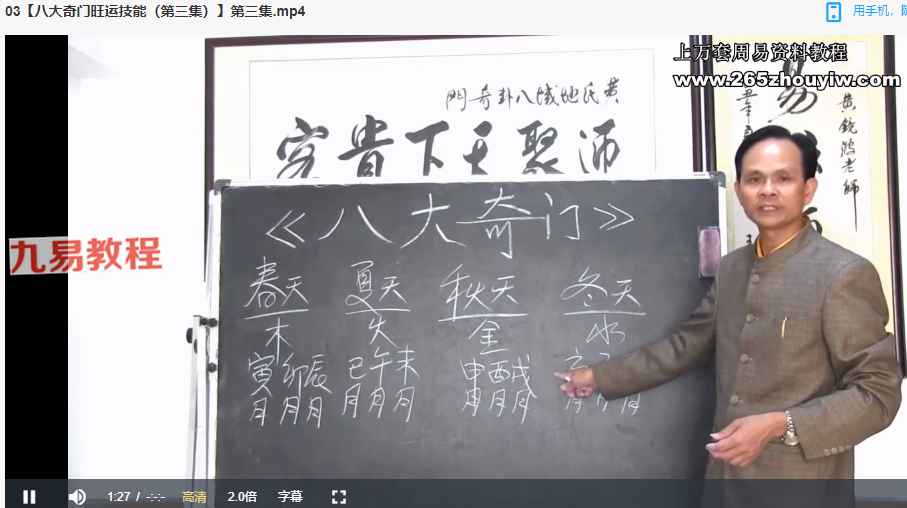 03【八大奇门旺运技能（第三集）】第三集.mp4
用手机，
上万套周易资料教程
www.265zhouyiw.com
門奇卦八域地氏黄
穷贵下天聚师
易
黄
老師
《八大奇门》
九易教程
春天 夏天 秋天 冬天
木 火 金 水
寅卯辰 巳午未 申酉戌 亥
月月月 月月月 月月月 月 月
1:27 / -:-:-
高清
2.0倍
字幕